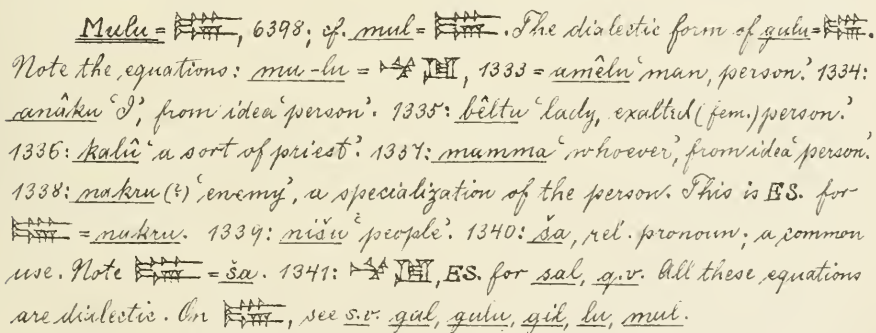 Mulu = 𒇽, 6398; cf. mul = 𒇽. The dialectic form of gulu = 𒇽.
Note the equations: mu-lu = 𒈬𒇻, 1333 = amêlu ‘man, person.’ 1334:
anâku ‘I’, from idea ‘person’. 1335: bêltu ‘lady, exalted (fem.) person.’
1336: kalû ‘a sort of priest’. 1337: mamma ‘whoever’, from idea ‘person.’
1338: nakru (?) ‘enemy’, a specialization of the person. This is ES. for
𒇽 = nukru. 1339: nišu ‘people’. 1340: ša, rel. pronoun; a common
use. Note 𒇽 = ša. 1341: 𒈬𒇻, ES. for sal, q.v. All these equations
are dialectic. On 𒇽, see s.v. gal, gulu, gil, lu, mul.